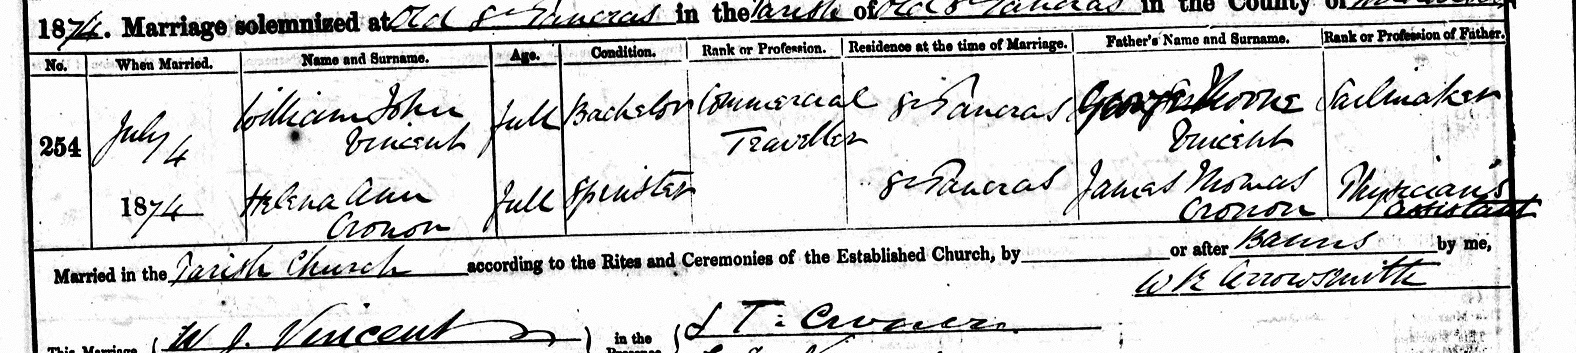 1874. Marriage solemnized at Old St Pancras in the Parish of Old St Pancras in the County of
No. When Married. Name and Surname. Age. Condition. Rank or Profession. Residence at the time of Marriage. Father's Name and Surname. Rank or Profession of Father.
254 July 4 1874 William John Vincent full Bachelor Commercial Traveller St Pancras George Vincent Sailmaker
Helena Ann Cronon full Spinster St Pancras James Thomas Cronon Physician's assistant
Married in the Parish Church according to the Rites and Ceremonies of the Established Church, by or after Banns by me,
W R Arrowsmith
This Marriage W J. Vincent in the Presence